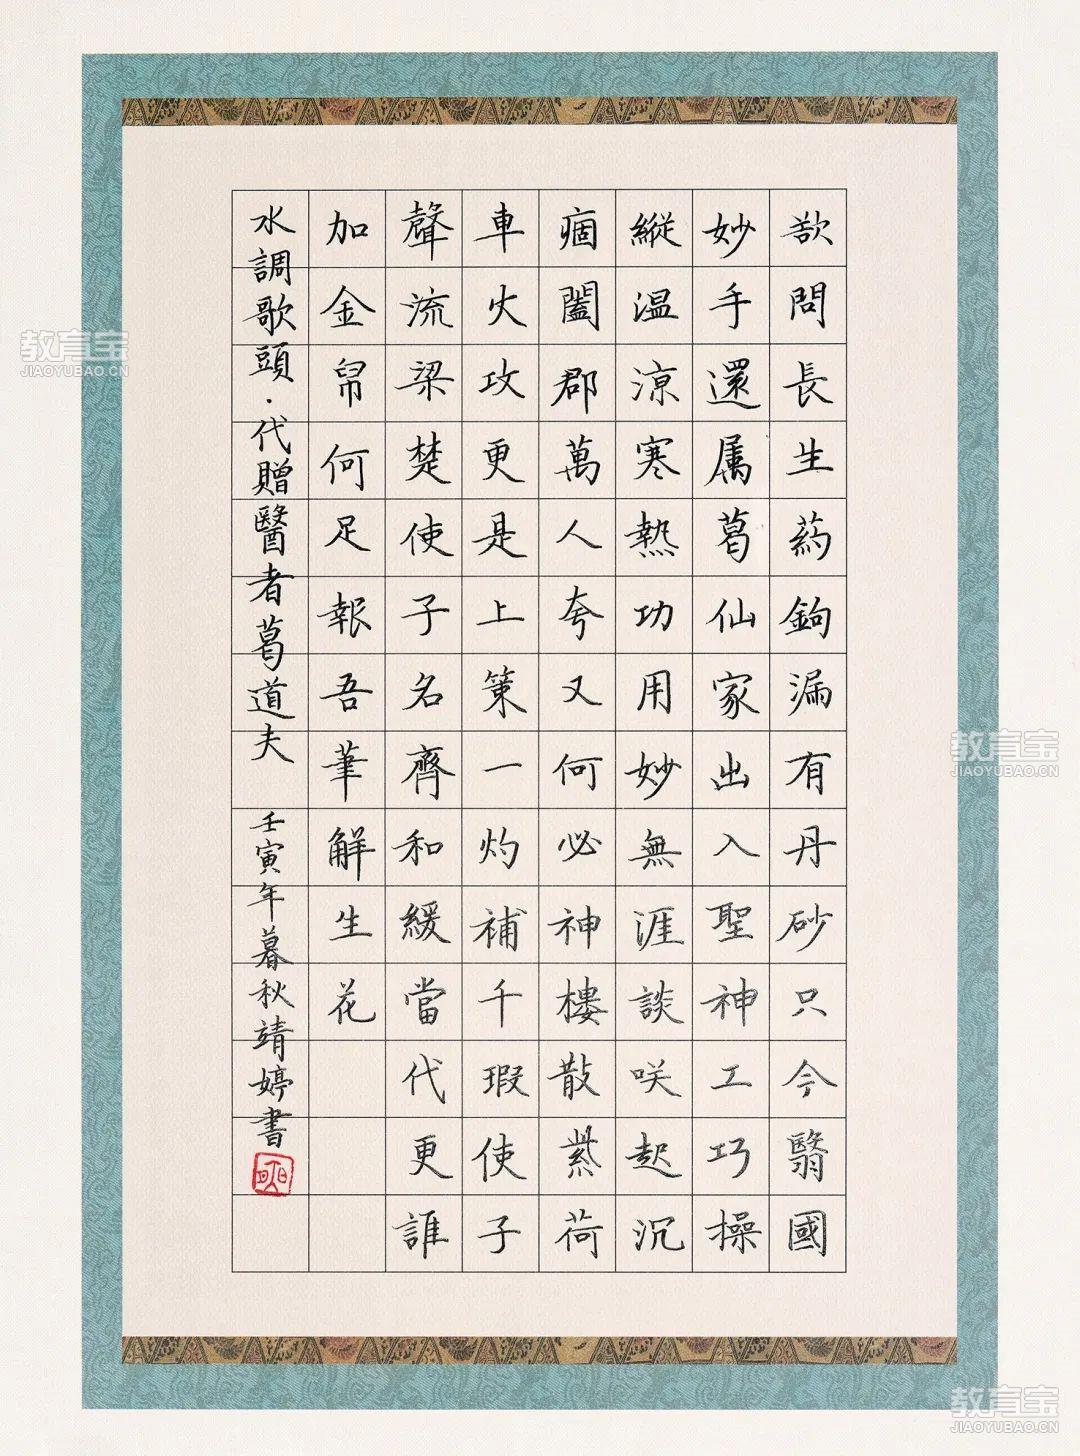 欲問長生藥鉤漏有丹砂只今醫國
妙手還属葛仙家出入聖神工巧操
縱温涼寒熱功用妙無涯談咲起沉
痼闔郡萬人夸又何必神樓散紫荷
車火攻更是上策一灼補千瑕使子
聲流梁楚使子名齊和緩當代更誰
加金帛何足報吾筆解生花
水調歌頭·代贈醫者葛道夫 壬寅年暮秋靖婷書
教育宝
JIAOYUBAO.CN
教育宝
JIAOYUBAO.CN
教育宝
JIAOYUBAO.CN